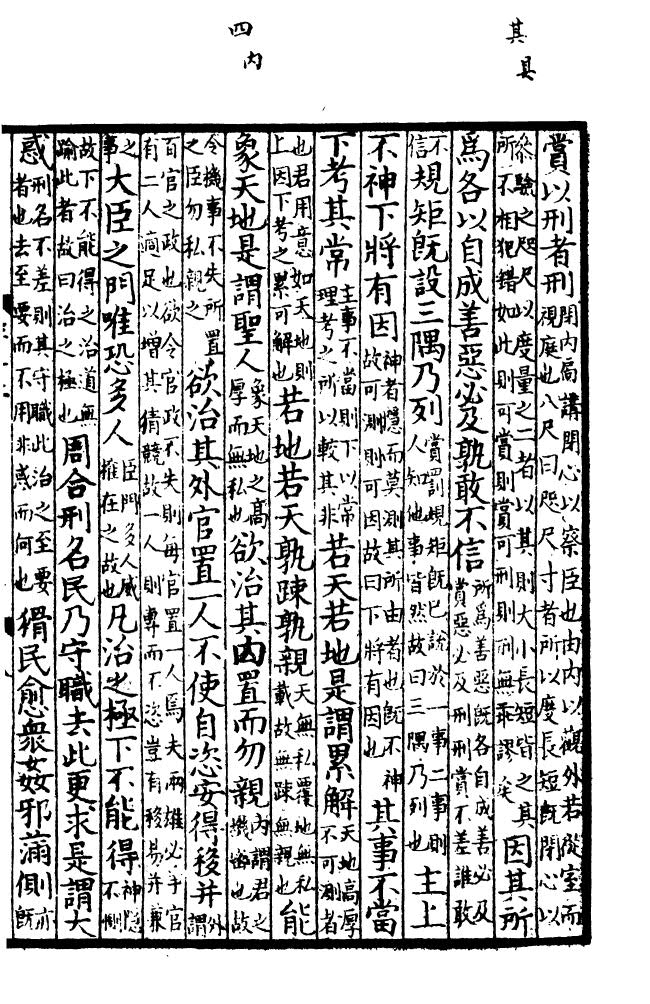 其具
四内
賞以刑者刑閉内扃講閉心以察臣也由内以觀外若從室而視庭也八尺曰咫尺寸者所以度長短旣閉心以
參驗之咫尺以度量之二者以其則大小長短皆之其所不相犯錯如此則可賞則賞可刑則刑無乖謬矣因其所
爲各以自成善惡必及孰敢不信所爲善惡旣各自成善必及賞惡必及刑刑賞不差誰敢
不信規矩旣設三隅乃列賞罰規矩旣已設於一事二事則人知他事皆然故曰三隅乃列也主上
不神下將有因神者隱而莫測其所由者也旣不神故可測則可因故曰下將有因也其事不當
下考其常主事不當則下以常理考之所以較其非若天若地是謂累解天地高厚不可測者
也君用意如天地則上因下考之累可解也若地若天孰疎孰親天無私覆地無私載故無疎無親也能
象天地是謂聖人象天地之高厚而無私也欲治其内置而勿親内謂君之機密也故
令機事不失所置之臣勿私親之欲治其外官置一人不使自恣安得移并外謂
百官之政也欲令官政不失則每官置一人焉夫兩雄必爭官有二人適足以增其猜競故一人則專而不恣豈有移易并兼
之事大臣之門唯恐多人臣門多人威權在之故也凡治之極下不能得神隱不測
故下不能得之治道無踰此者故曰治之極也周合刑名民乃守職去此更求是謂大
惑刑名不差則其守職此治之至要者也去至要而不用非惑而何也猾民愈衆姦邪滿側亦旣